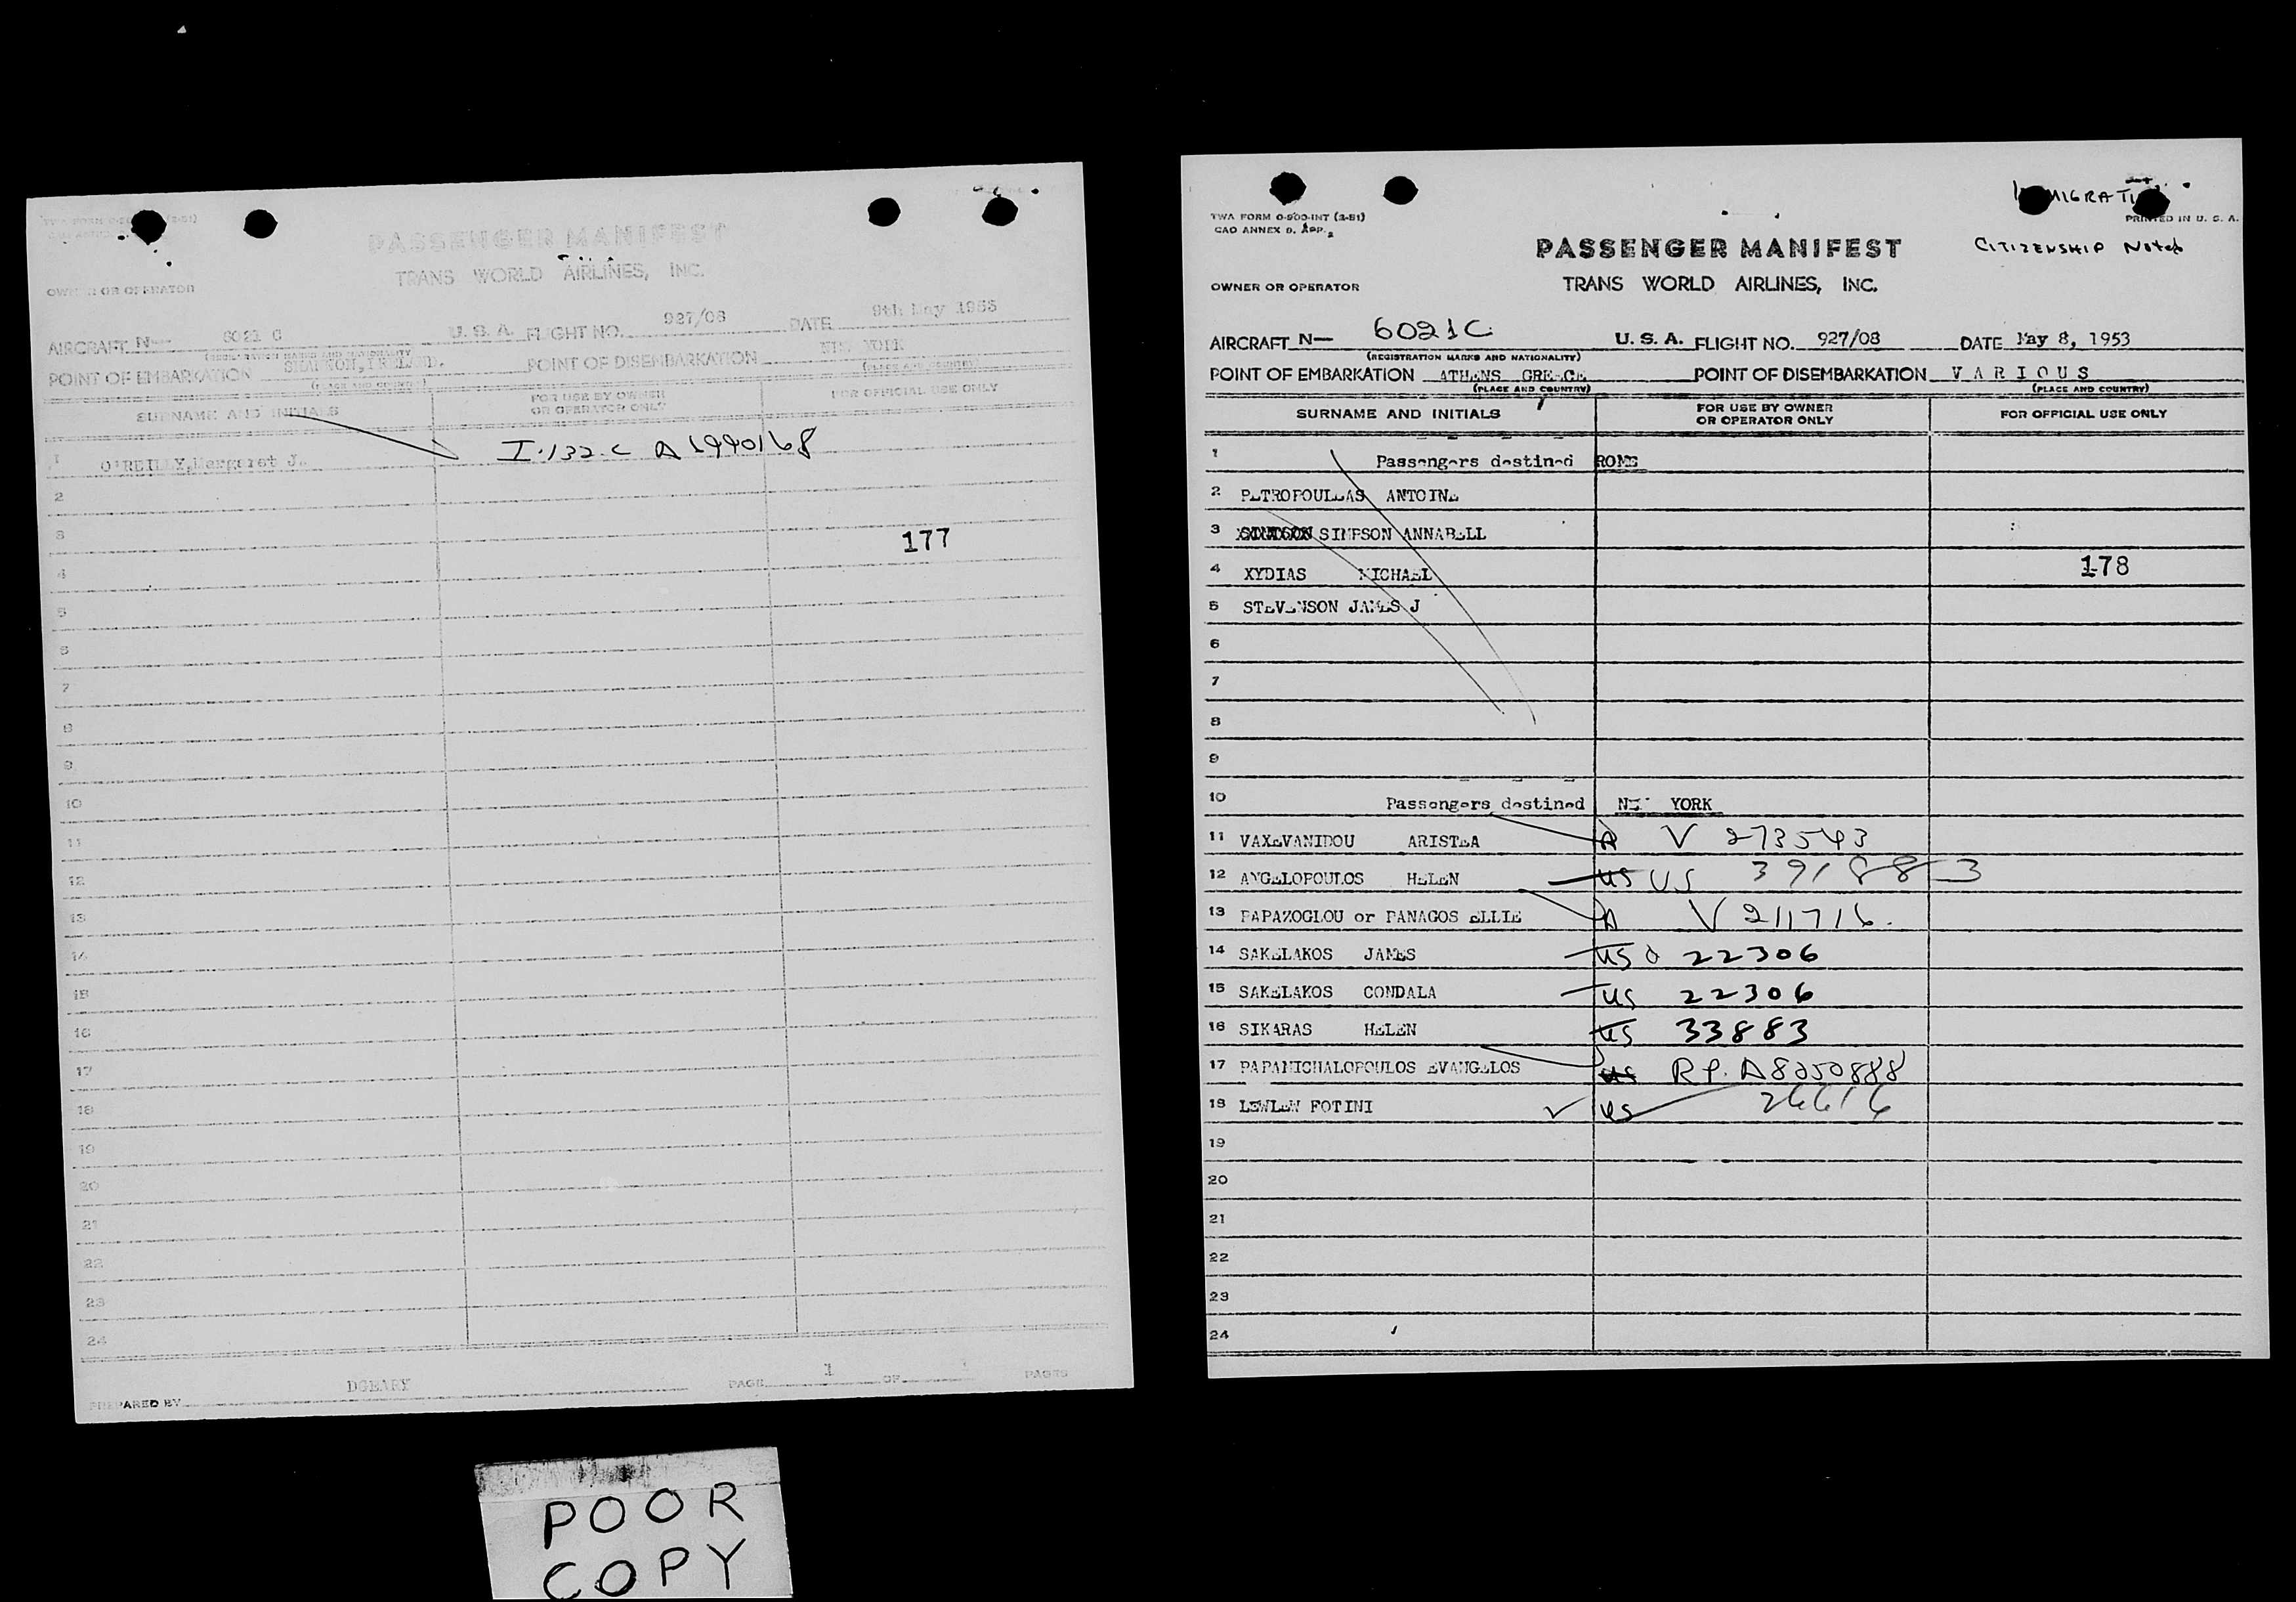 PASSENGER MANIFEST
TRANS WORLD AIRLINES, INC.
OWNER OR OPERATOR
AIRCRAFT N— 6021 C U. S. A. FLIGHT NO. 927/08 DATE 9th May 1953
(REGISTRATION MARKS AND NATIONALITY)
POINT OF EMBARKATION SHANNON, IRELAND. POINT OF DISEMBARKATION NEW YORK
(PLACE AND COUNTRY) (PLACE AND COUNTRY)
SURNAME AND INITIALS FOR USE BY OWNER OR OPERATOR ONLY FOR OFFICIAL USE ONLY
1 O'REILLY, Margaret J. I-132-C A6990168
2
3 177
4
5
6
7
8
9
10
11
12
13
14
15
16
17
18
19
20
21
22
23
24
PREPARED BY DGEARY PAGE 1 OF 1 PAGES
POOR
COPY
IMMIGRATION
TWA FORM O-900-INT (2-51)
CAO ANNEX 9, APP. 2
PRINTED IN U. S. A.
CITIZENSHIP Noted
PASSENGER MANIFEST
TRANS WORLD AIRLINES, INC.
OWNER OR OPERATOR
AIRCRAFT N— 6021C U. S. A. FLIGHT NO. 927/08 DATE May 8, 1953
(REGISTRATION MARKS AND NATIONALITY)
POINT OF EMBARKATION ATHENS GREECE POINT OF DISEMBARKATION VARIOUS
(PLACE AND COUNTRY) (PLACE AND COUNTRY)
SURNAME AND INITIALS FOR USE BY OWNER OR OPERATOR ONLY FOR OFFICIAL USE ONLY
1 Passengers destined ROME
2 PETROPOULEAS ANTOINE
3 SIMPSON ANNABELL
4 XYDIAS MICHAEL 178
5 STEVENSON JAMES J
6
7
8
9
10 Passengers destined NEW YORK
11 VAXEVANIDOU ARISTEA A V 273543
12 ANGELOPOULOS HELEN US US 391883
13 PAPAZOGLOU or PANAGOS ELLIE A V 211716.
14 SAKELAKOS JAMES US 22306
15 SAKELAKOS CONDALA US 22306
16 SIKARAS HELEN US 33883
17 PAPAMICHALOPOULOS EVANGELOS US RP. A8250888
18 LEWLEW FOTINI US 26616
19
20
21
22
23
24